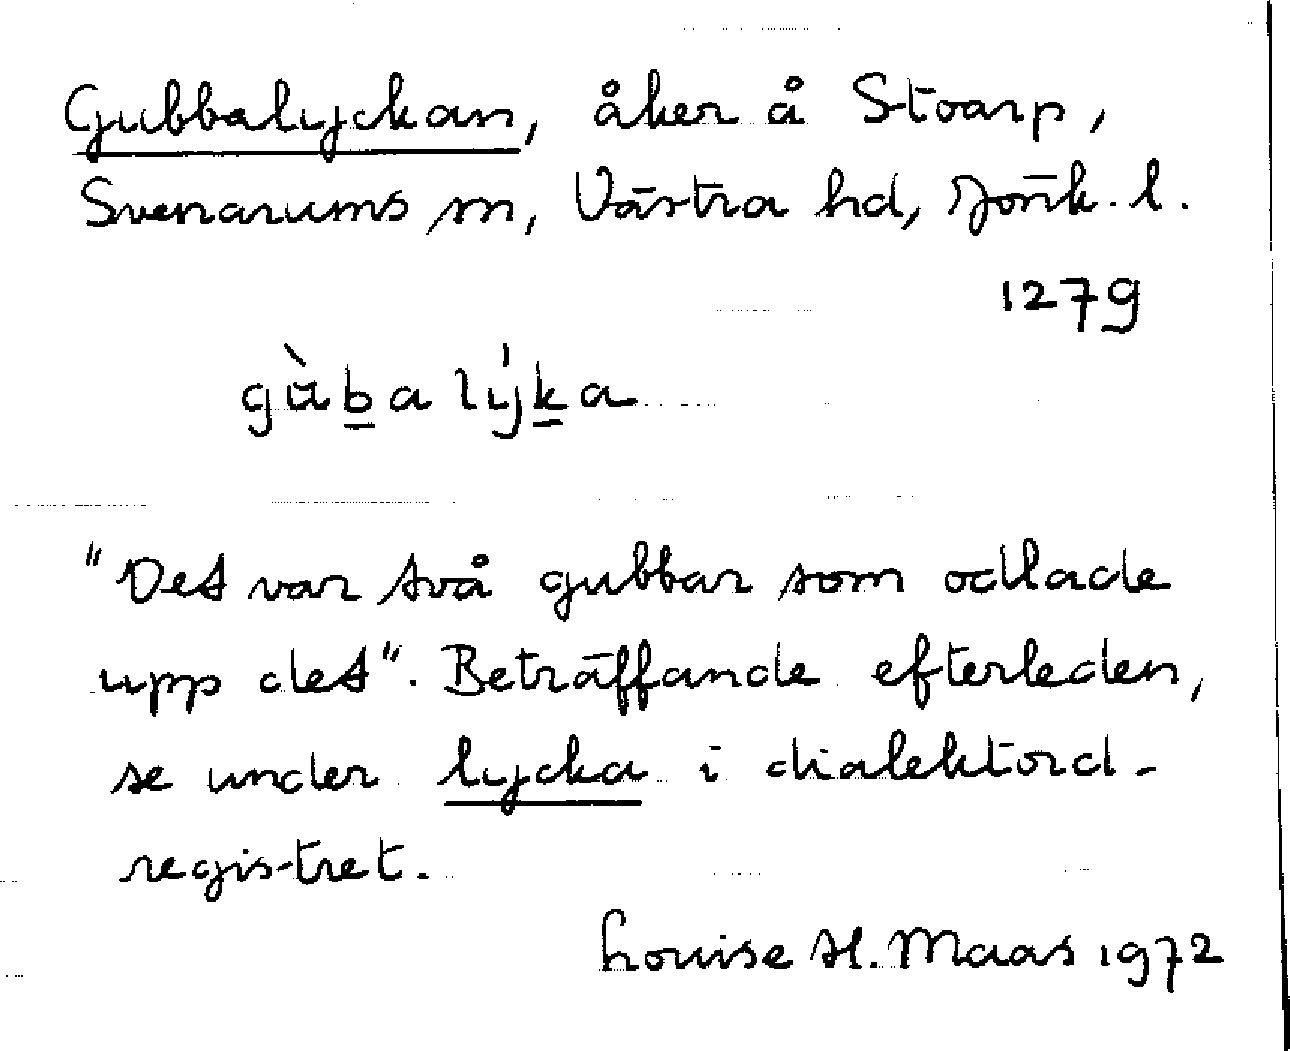 Gubbalyckan, åker å Stoarp,
Svenarums sn, Västra hd, Jönk. l.
1279
gùba lýka
"Det var två gubbar som odlade
upp det". Beträffande efterleden,
se under lycka i dialektord-
registret.
Louise H. Maas 1972